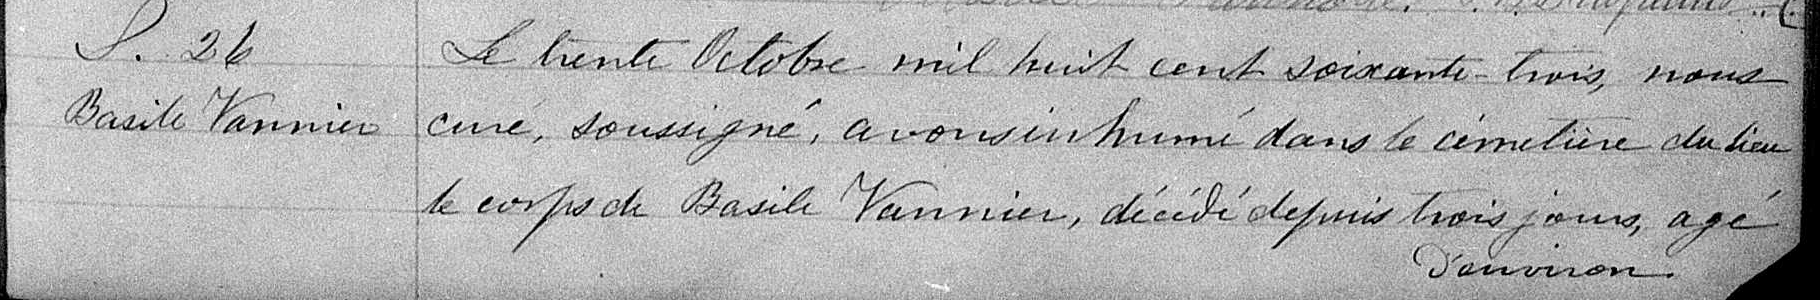 S. 26
Basile Vannier
Le trente Octobre mil huit cent soixante-trois, nous
curé, soussigné, avons inhumé dans le cémetière du lieu
le corps de Basile Vannier, décédé depuis trois jours, agé
d'environ.